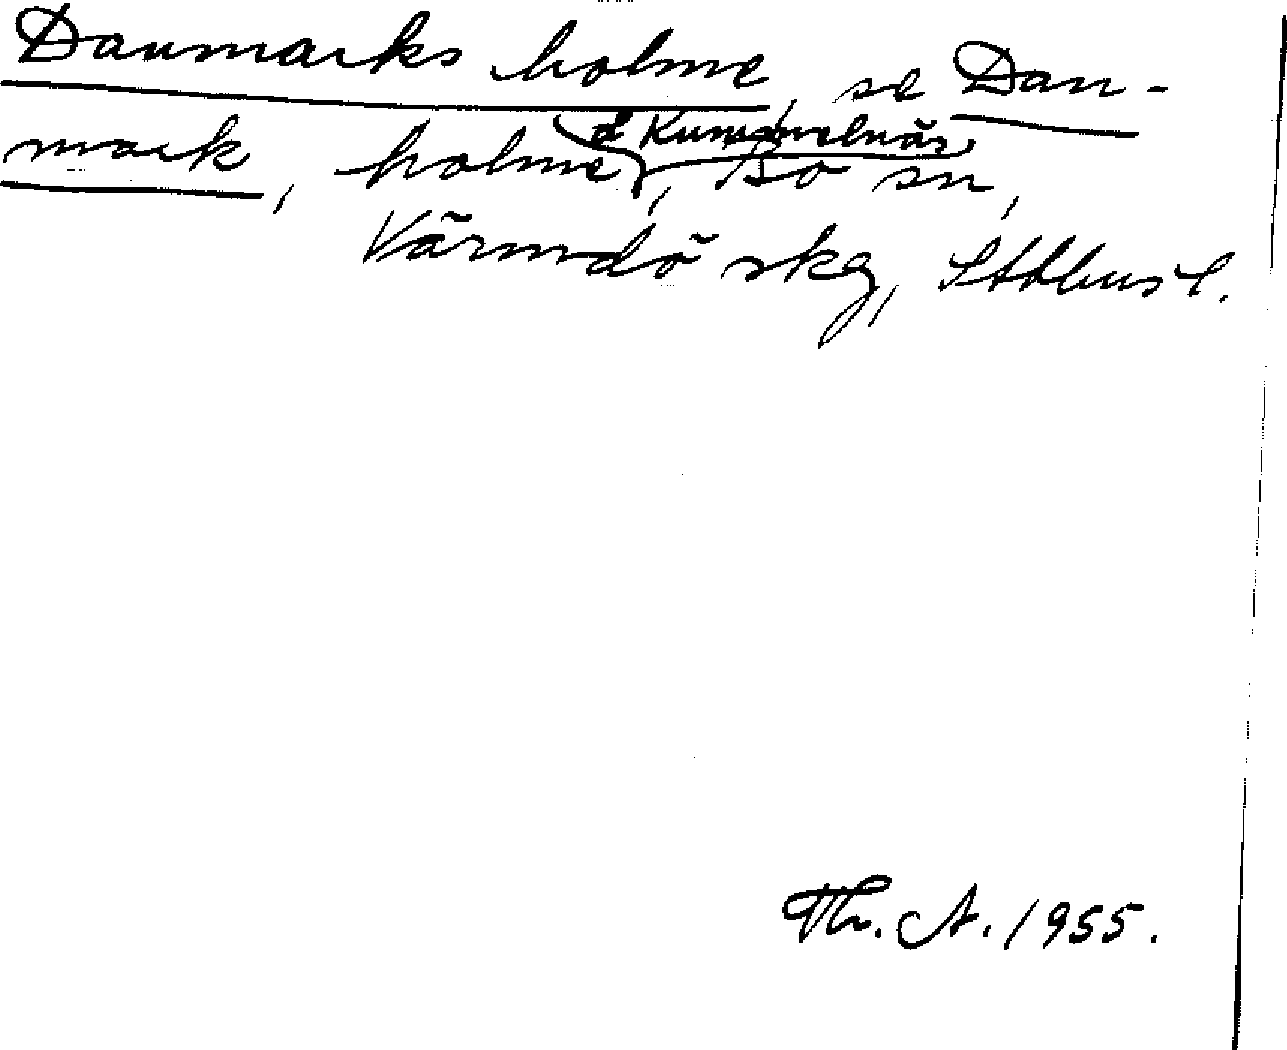 Danmarks holme, se Dan-
mark, holme, å Kummelnäs, Bo sn,
Värmdö skg, Sthlms l.
Th. A. 1955.